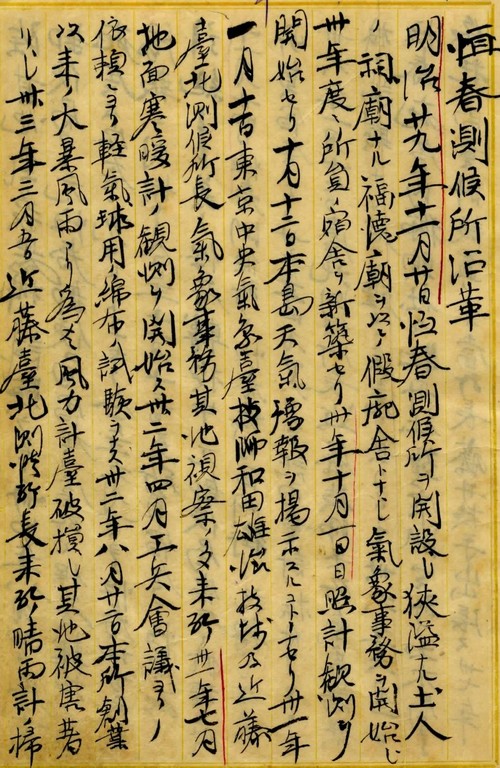 恒春測候所沿革
明治廿九年十一月廿日恒春測候所ヲ開設し狹溢ナル土人
ノ祠廟ナル福德廟ヲ以テ假庁舎トナし氣象事務ヲ開始し
卅年度ニ所員ノ宿舎ヲ新築セリ卅年十月一日日照計観測ヲ
開始セリ十月十二日本島天氣豫報ヲ揚示スルコトヽセリ卅一年
一月 東京中央氣象臺技師和田雄治技師乃近藤
臺北測候所長氣象事務其他視察ノ爲来所卅一年七月
地面寒暖計ノ観測ヲ開始ス卅二年四月工兵會議ヨリノ
依頼ニヨリ軽氣球用ノ綿布ノ試験ヲナス卅二年八月 本所創業
以来ノ大暴風雨ヨリ為メニ風力計臺破損し其他被害著
リし卅三年三月 近藤臺北測候所長来所晴雨計ノ掃